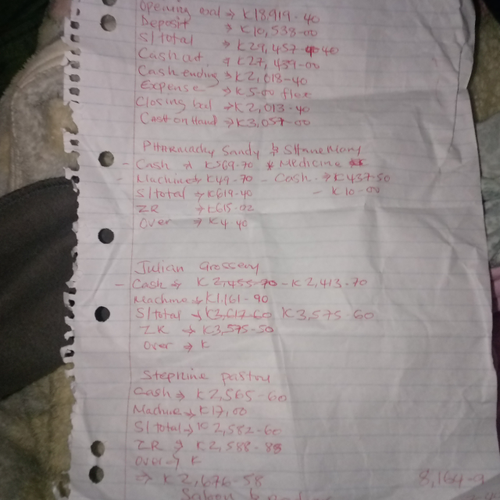 Opening bal → K18,919-40
Deposit → K10,538-00
S/total → K29,457-40
Cash out → K27,439-00
Cash ending → K2,018-40
Expense → K5-00 flex
Closing bal → K2,013-40
Cash on Hand → K3,057-00
Sandy &
- Cash → K569-70 & Medicine
- Machine → K49-70 - Cash → K437-50
S/total → K619-40 - K10-00
ZR → K615-00
Over → K4-40
Julian Grossery
- Cash → K2,455-70 - K2,413-70
Machine → K1,161-90
S/total → K3,617-60 K3,575-60
ZR → K3,575-50
Over → K
Stephine pastry
Cash → K2,565-60
Machine → K17,00
S/total → K2,582-60
ZR → K2,588-88
Over → K
→ K2,676-58